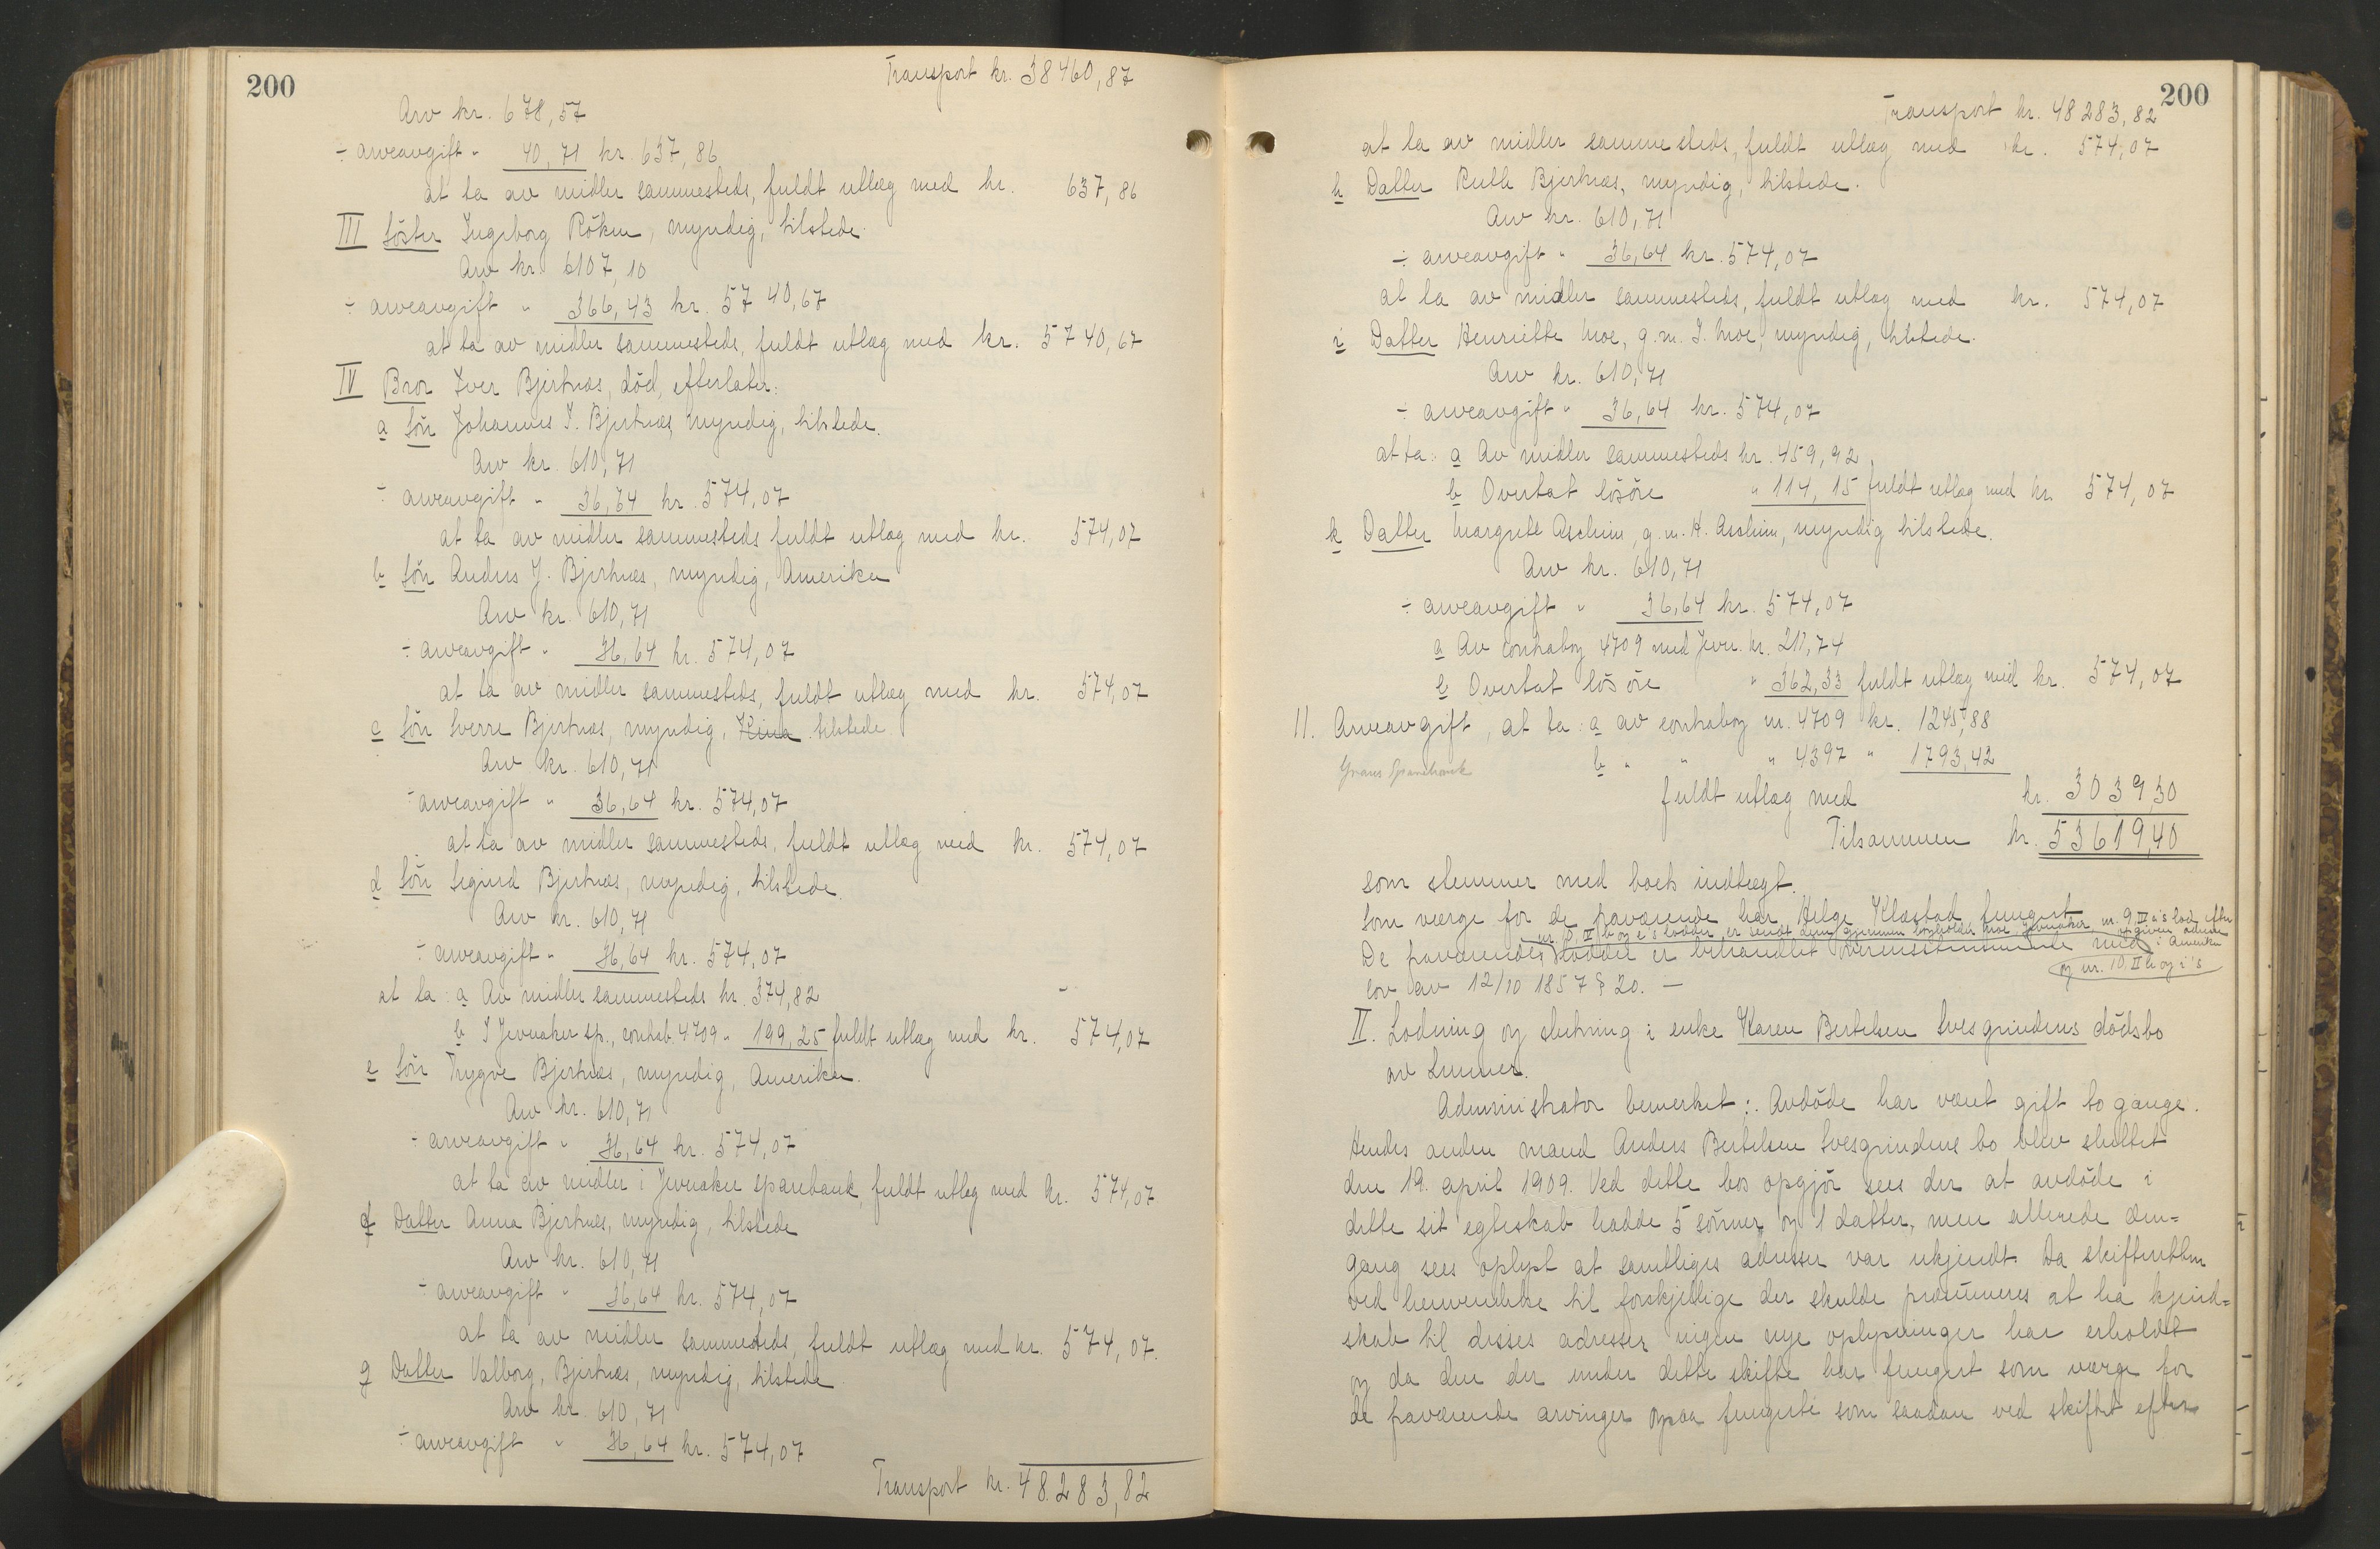 200
Transport kr. 38460,87
Arv kr. 678,57
÷ arveavgift " 40,71 kr. 637,86
at ta av midler sammesteds, fuldt utlæg med kr. 637,86
III Söster Ingeborg Röken, myndig, tilstede.
Arv kr. 6107,10
÷ arveavgift " 366,43 kr. 5740,67
at ta av midler sammesteds, fuldt utlæg med kr. 5740,67
IV Bror Iver Bjertnæs, död, efterlater:
a Sön Johannes I. Bjertnæs, myndig, tilstede.
Arv kr. 610,71
÷ arveavgift " 36,64 kr. 574,07
at ta av midler sammesteds fuldt utlæg med kr. 574,07
b Sön Anders J. Bjertnæs, myndig, Amerika
Arv kr. 610,71
÷ arveavgift " 36,64 kr. 574,07
at ta av midler sammesteds, fuldt utlæg med kr. 574,07
c Sön Sverre Bjertnæs, myndig, Kina tilstede
Arv kr. 610,71
÷ arveavgift " 36,64 kr. 574,07
at ta av midler sammesteds, fuldt utlæg med kr. 574,07
d Sön Sigurd Bjertnæs, myndig, tilstede.
Arv kr. 610,71
÷ arveavgift " 36,64 kr. 574,07
at ta: a Av midler sammesteds kr. 374,82
b I Jevnaker sp., contrab. 4709 " 199,25 fuldt utlæg med kr. 574,07
e Sön Trygve Bjertnæs, myndig, Amerika.
Arv kr. 610,71
÷ arveavgift " 36,64 kr. 574,07
at ta av midler i Jevnaker sparebank, fuldt utlæg med kr. 574,07
f Datter Anna Bjertnæs, myndig, tilstede
Arv kr. 610,71
÷ arveavgift " 36,64 kr. 574,07
at ta av midler sammesteds, fuldt utlæg med kr. 574,07.
g Datter Valborg Bjertnæs, myndig, tilstede.
Arv kr. 610,71
÷ arveavgift " 36,64 kr. 574,07
Transport kr. 48.283,82
200
Transport kr. 48283,82
at ta av midler sammesteds, fuldt utlæg med kr. 574,07
h Datter Ruth Bjertnæs, myndig, tilstede.
Arv kr. 610,71
÷ arveavgift " 36,64 kr. 574,07
at ta av midler sammesteds, fuldt utlæg med kr. 574,07
i Datter Henriette Moe, g.m. I. Moe, myndig, tilstede.
Arv kr. 610,71
÷ arveavgift " 36,64 kr. 574,07
at ta: a Av midler sammesteds kr. 459,92
b Overtat lösöre " 114,15 fuldt utlæg med kr. 574,07
k Datter Margrete Aschim, g.m. H. Aschim, myndig tilstede.
Arv kr. 610,71
÷ arveavgift " 36,64 kr. 574,07
a Av contrabog 4709 med Jevn. kr. 211,74
b Overtat lösöre " 362,33 fuldt utlæg med kr. 574,07
11. Arveavgift, at ta: a av contrabog nr. 4709 kr. 1245,88
b " " " 4397 " 1793,42
Grans Sparebank
fuldt utlæg med kr. 3039,30
Tilsammen kr. 53619,40
som stemmer med boets indtægt.
Som værge for de fraværende har Helge Klæstad fungert
nr. 9 IV a's lod efter
nr. 10 IV b og e's lodder er sendt dem gjennem Moe Jevnaker opgiven adresse i Amerika
De fraværendes lodder er behandlet overensstemmende med
og nr. 10 II h og i's
lov av 12/10 1857 § 20. —
II. Lodning og slutning i enke Karen Bertelsen Svesgrindens dödsbo
av Lunner.
Administrator bemerket: Avdöde har været gift to gange.
Hendes anden mand Anders Bertelsen Svesgrindens bo blev sluttet
den 19. april 1909. Ved dette bos opgjör sees der at avdöde i
dette sit egteskab hadde 5 sönner og 1 datter, men allerede den=
gang sees oplyst at samtliges adresser var ukjendt. Da skifteretten
ved henvendelse til forskjellige der skulde præsumeres at ha kjend=
skab til disses adresser ingen nye oplysninger har erholdt
og da den der under dette skifte har fungert som værge for
de fraværende arvinger ogsaa fungerte som saadan ved skiftet efter